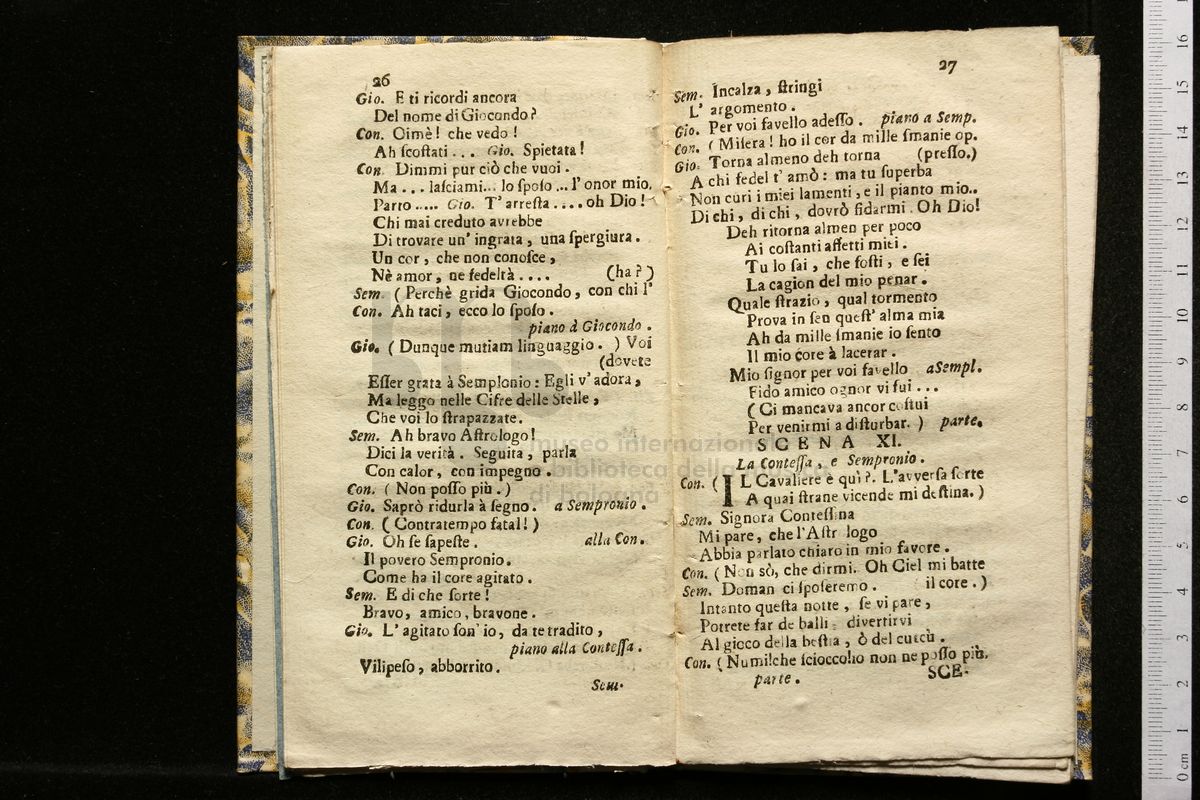 26
Gio. E ti ricordi ancora
Del nome di Giocondo?
Con. Oimè! che vedo!
Ah ſcoſtati... Gio. Spietata!
Con. Dimmi pur ciò che vuoi.
Ma... laſciami... lo ſpoſo... l'onor mio.
Parto..... Gio. T'arreſta.... oh Dio!
Chi mai creduto avrebbe
Di trovare un' ingrata, una ſpergiura.
Un cor, che non conoſce,
Nè amor, ne fedeltà.... (ha?)
Sem. (Perchè grida Giocondo, con chi l'
Con. Ah taci, ecco lo ſpoſo.
piano à Giocondo.
Gio. (Dunque mutiam linguaggio.) Voi
(dovete
Eſſer grata à Semplonio: Egli v'adora,
Ma leggo nelle Cifre delle Stelle,
Che voi lo ſtrapazzate.
Sem. Ah bravo Aſtrologo!
Dici la verità. Seguita, parla
Con calor, con impegno.
Con. (Non poſſo più.)
Gio. Saprò ridurla à ſegno. a Sempronio.
Con. (Contratempo fatal!)
Gio. Oh ſe ſapeſte. alla Con.
Il povero Sempronio.
Come ha il core agitato.
Sem. E di che ſorte!
Bravo, amico, bravone.
Gio. L'agitato ſon' io, da te tradito,
piano alla Conteſſa.
Vilipeſo, abborrito.
Sem.
27
Sem. Incalza, ſtringi
L' argomento.
Gio. Per voi favello adeſſo. piano a Semp.
Con. (Miſera! ho il cor da mille ſmanie op.
Gio. Torna almeno deh torna (preſſo.)
A chi fedel t' amò: ma tu ſuperba
Non curi i miei lamenti, e il pianto mio..
Di chi, di chi, dovrò fidarmi. Oh Dio!
Deh ritorna almen per poco
Ai coſtanti affetti miei.
Tu lo ſai, che foſti, e ſei
La cagion del mio penar.
Quale ſtrazio, qual tormento
Prova in ſen queſt' alma mia
Ah da mille ſmanie io ſento
Il mio core à lacerar.
Mio ſignor per voi favello a Sempl.
Fido amico ognor vi fui...
(Ci mancava ancor coſtui
Per venirmi a diſturbar.) parte.
SCENA XI.
La Conteſſa, e Sempronio.
Con. (IL Cavaliere è quì?. L'avverſa ſorte
A quai ſtrane vicende mi deſtina.)
Sem. Signora Conteſſina
Mi pare, che l'Aſtrologo
Abbia parlato chiaro in mio favore.
Con. (Non sò, che dirmi. Oh Ciel mi batte
Sem. Doman ci ſpoſeremo. il core.)
Intanto queſta notte, ſe vi pare,
Potrete far de balli: divertirvi
Al gioco della beſtia, ò del cuccù.
Con. (Numi! che ſcioccolio non ne poſſo più.
parte. SCE-
museo internazionale
biblioteca della musica
di bologna
0 cm 1 2 3 4 5 6 7 8 9 10 11 12 13 14 15 16